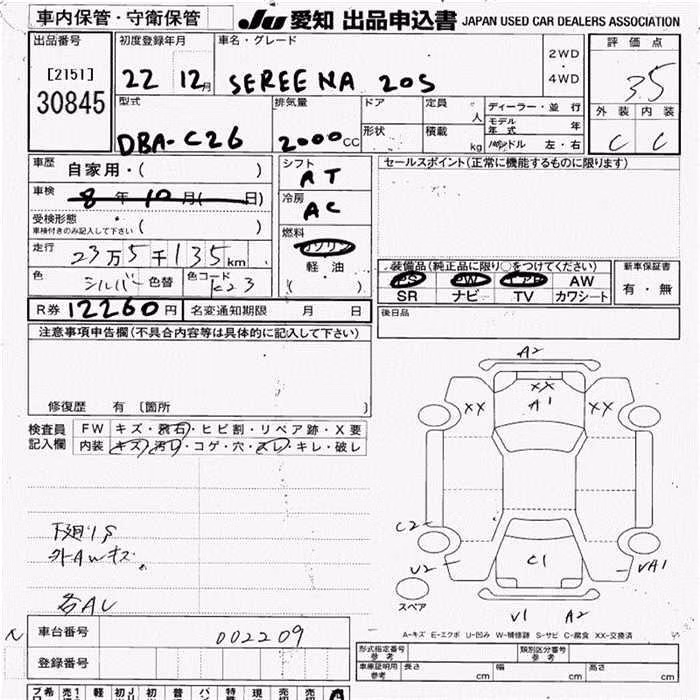 車内保管・守衛保管
JU 愛知 出品申込書 JAPAN USED CAR DEALERS ASSOCIATION
出品番号
[2151]
30845
初度登録年月
22 12月
車名・グレード
SEREENA 20S
2WD
・
4WD
評価点
3.5
外装 内装
C C
型式
DBA-C26
排気量
2000CC
ドア
形状
定員
人
積載
kg
ディーラー・並行
モデル年式 年
ハンドル 左・右
車歴 自家用・( )
車検 8年10月( 日)
受検形態
車検付きのみ記入して下さい ( )
走行 23万5千135km
色 シルバー 色替 色コード K23
シフト
AT
冷房
AC
燃料
ガソリン
軽・油
( )
セールスポイント(正常に機能するものに限ります)
装備品(純正品に限り○をつけてください)
PS PW エアB AW
SR ナビ TV カワシート
新車保証書
有・無
R券 12260円 名変通知期限 月 日
後日品
注意事項申告欄(不具合内容等は具体的に記入して下さい)
修復歴 有 〔箇所 〕
検査員記入欄
FW キズ・飛石・ヒビ割・リペア跡・X要
内装 キズ・汚れ・コゲ・穴・スレ・キレ・破レ
下廻りS
外AWキズ。
各AU
A2
XX
XX A1 XX
C2
U2 C1 UA1
スペア
V1 A2
A-キズ E-エクボ U-凹み W-補修跡 S-サビ C-腐食 XX-交換済
車台番号 002209
登録番号
形式指定番号 参考
類別区分番号 参考
車庫証明用 参考 長さ cm 幅 cm 高さ cm